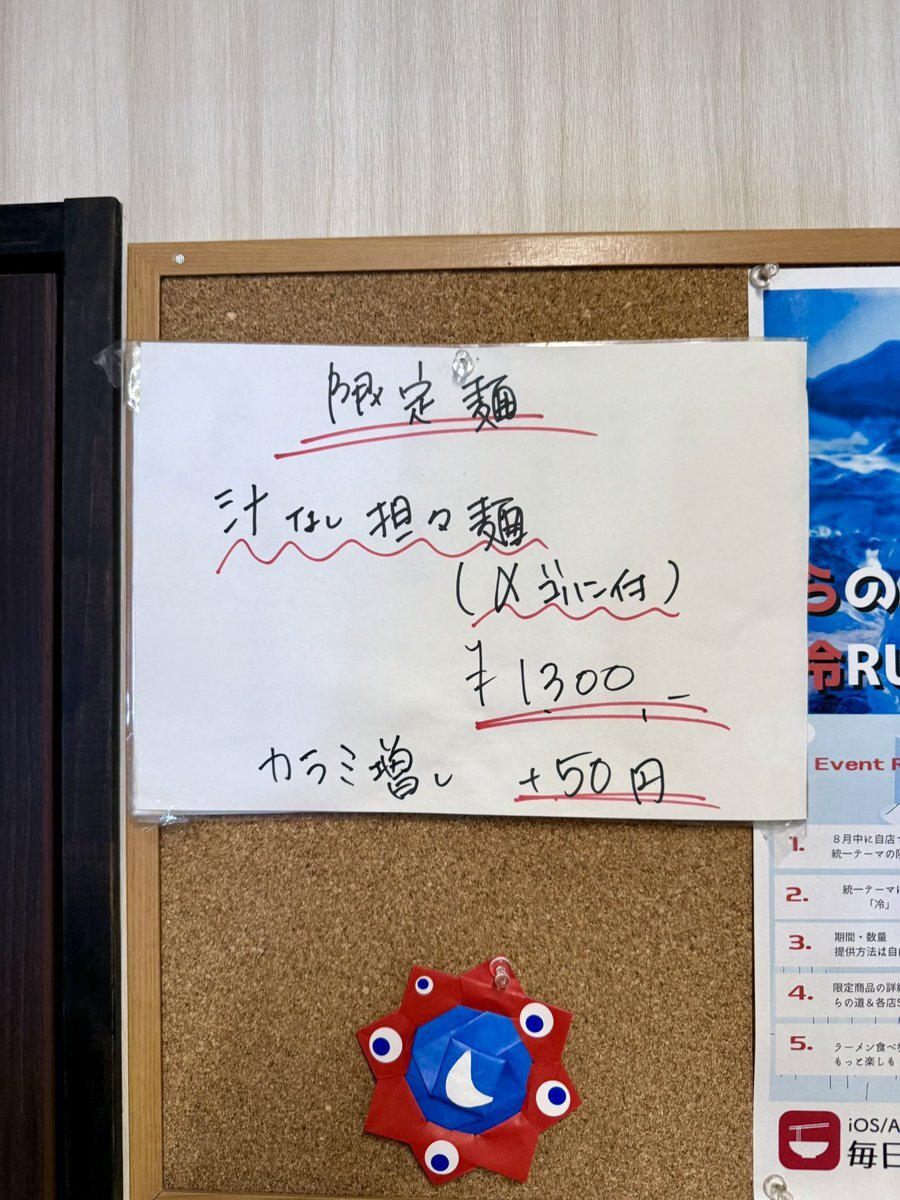 限定麺
汁なし担々麺
(〆ゴハン付)
¥1300.-
カラミ増し +50円
らの
冷RU
Event R
1. 8月中に自店
統一テーマの
2. 統一テーマ
「冷」
3. 期間・数量
提供方法は自
4. 限定商品の詳
らの道&各店S
5. ラーメン食べ
もっと楽しも
iOS/A
毎日